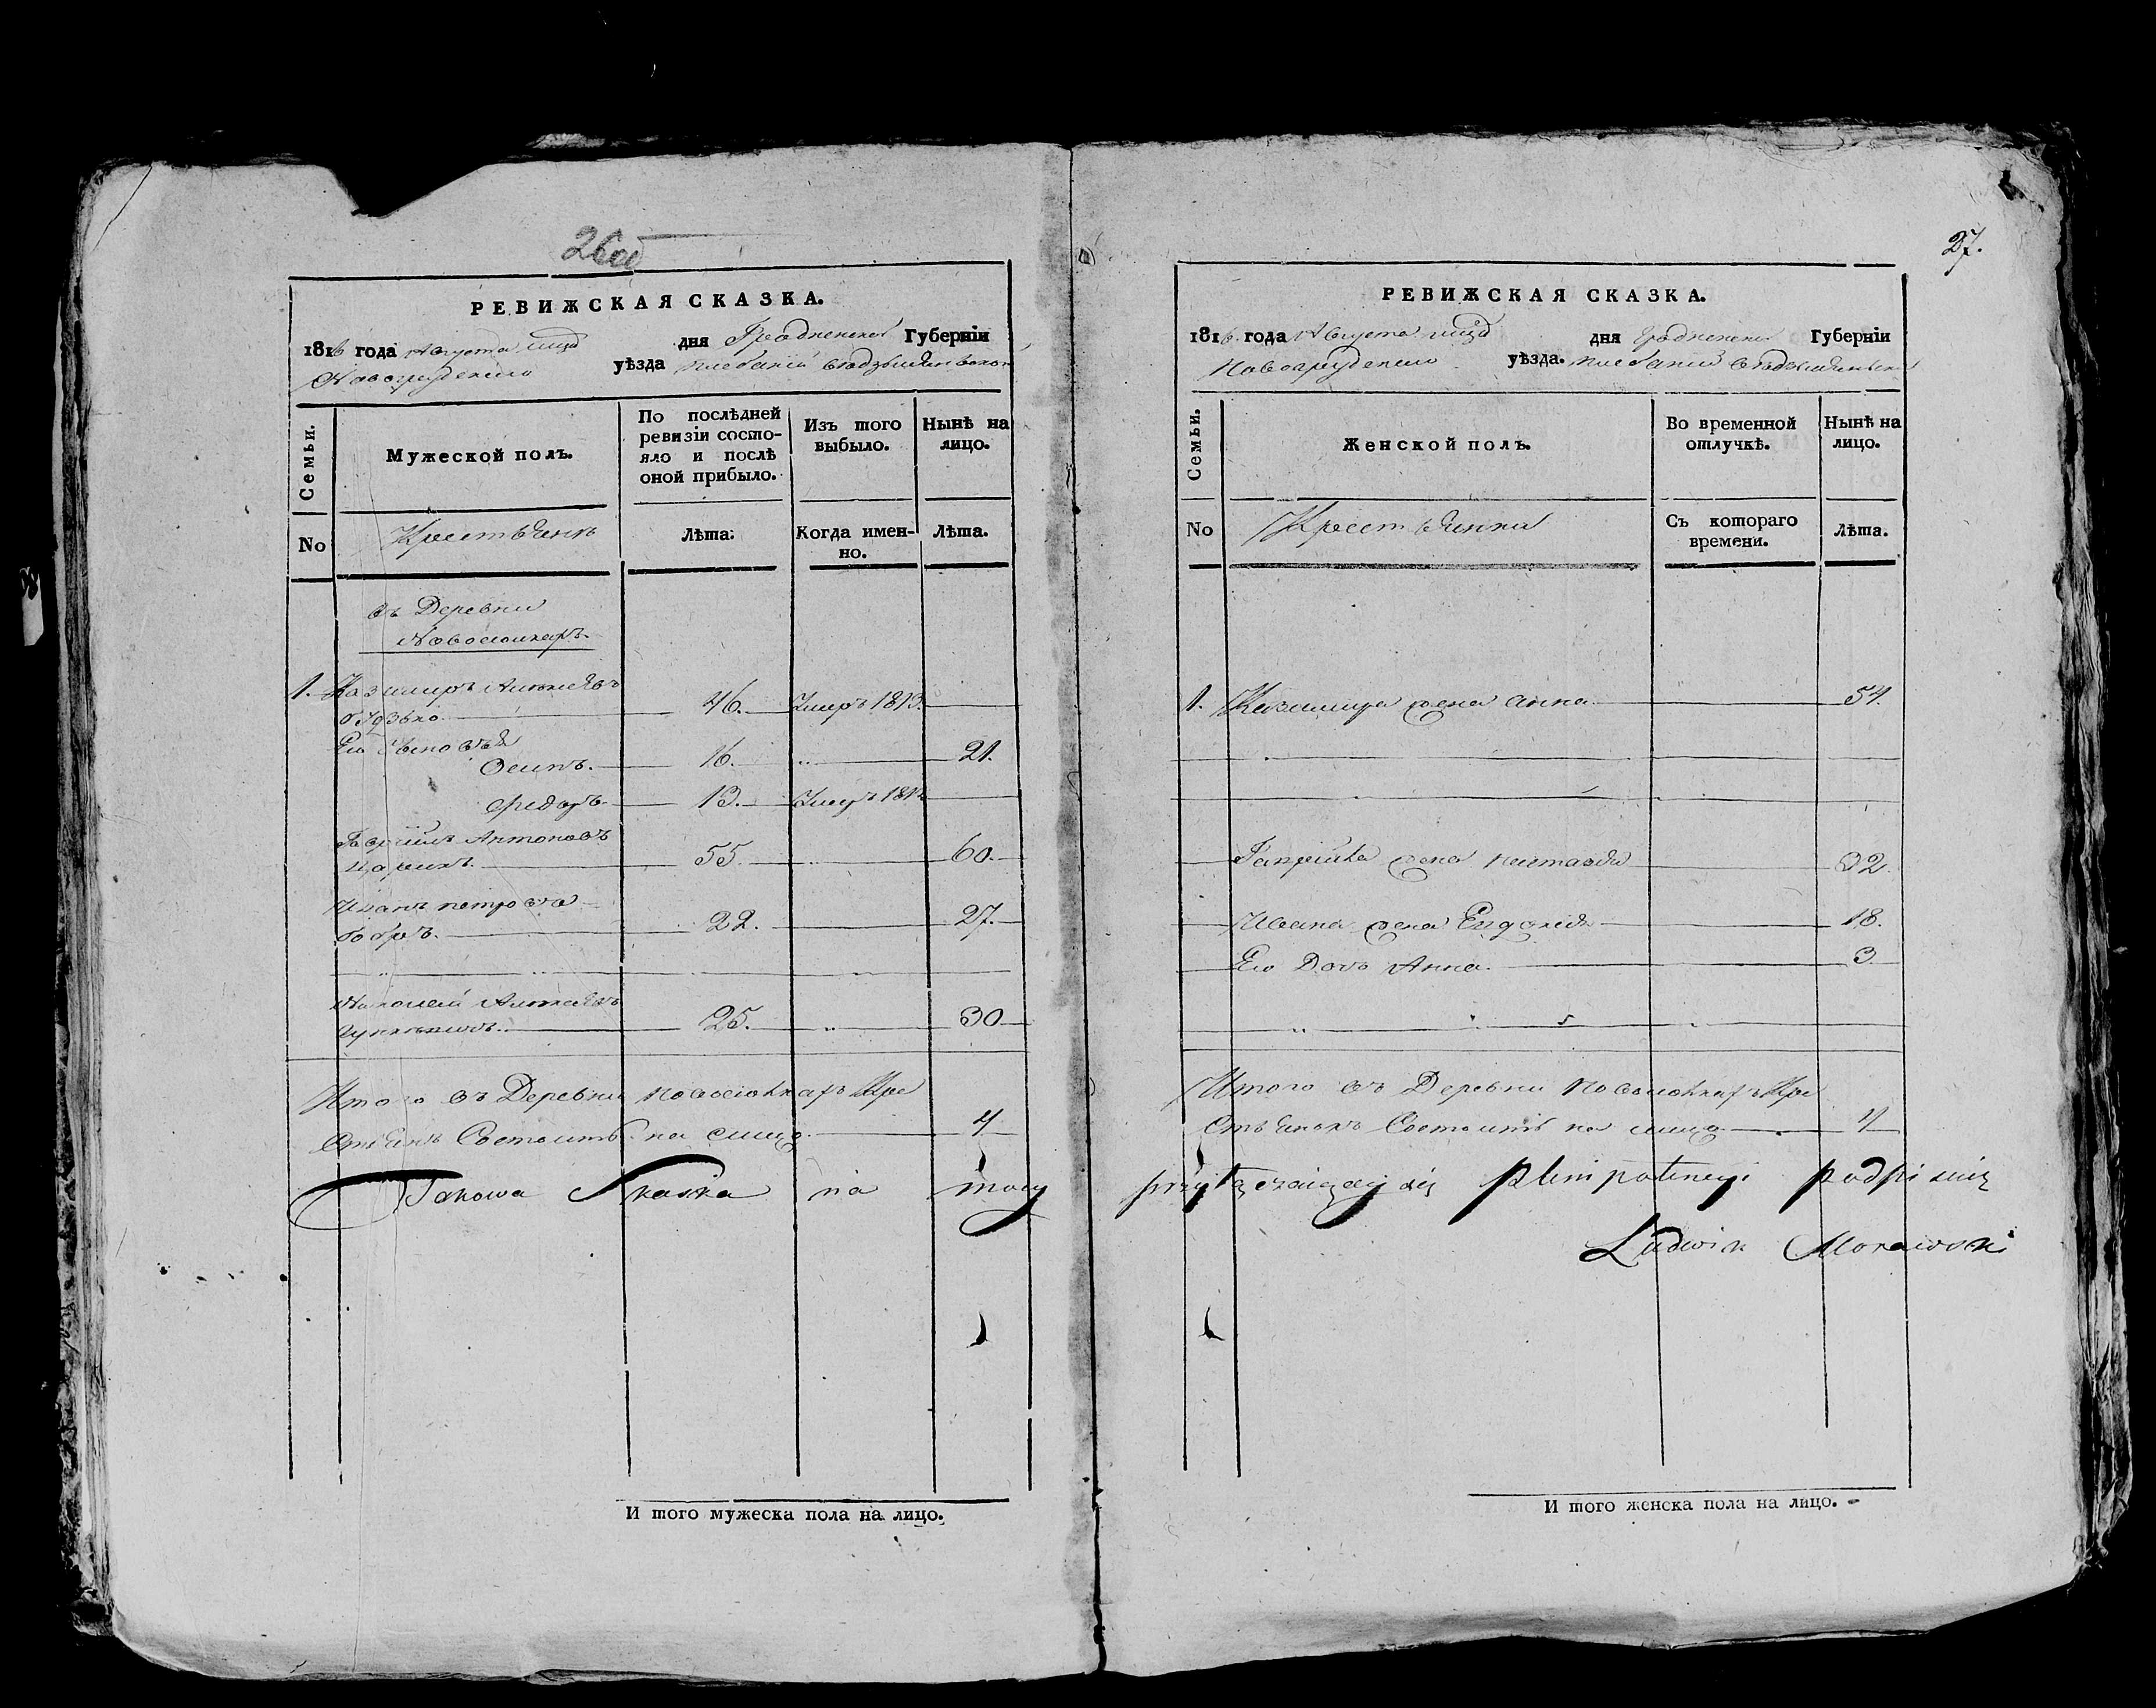 26об
РЕВИЖСКАЯ СКАЗКА.
1816 года Августа мца дня Гродненской Губерніи
Новогрудскаго уѣзда плебаніи
Семьи.
Мужеской полъ.
По послѣдней ревизіи состояло и послѣ оной прибыло.
Изъ того выбыло.
Нынѣ на лицо.
No
Крестьянъ
Лѣта.
Когда именно.
Лѣта.
въ Деревни
Новоселкахъ
1. Казимиръ
46. Умеръ 1813.
Его Сыновья
Осипъ. 16. 21.
Федоръ. 13. Умеръ 1812
Гаврiилъ Антоновъ
55. 60.
Иванъ Петровъ
Бобръ. 22. 27.
Николай
25. 30
Итого въ Деревни Новоселкахъ Кре
стьянъ Состоитъ на лицо 4
Takowa Skaska na mocy
27.
РЕВИЖСКАЯ СКАЗКА.
1816 года Августа мца дня Гродненской Губерніи
Новогрудскаго уѣзда. плебаніи
Семьи.
Женской полъ.
Во временной отлучкѣ.
Нынѣ на лицо.
No
Крестьянки
Съ котораго времени.
Лѣта.
1. Казимира жена Анна 54.
жена Настазья 32
Ивана жена 18.
Его Дочь Анна. 3
Итого въ Деревни Новоселкахъ Кре
стьянокъ Состоитъ на лицо 4
przyłączaiącey się plenipotencyi podpisuię
Ludwik Morawski
И того мужеска пола на лицо.
И того женска пола на лицо.